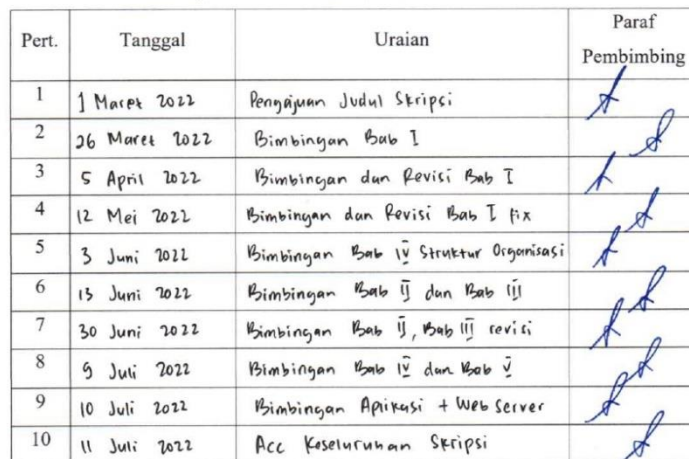 Pert. Tanggal Uraian Paraf Pembimbing
1 1 Maret 2022 Pengajuan Judul Skripsi
2 26 Maret 2022 Bimbingan Bab I
3 5 April 2022 Bimbingan dan Revisi Bab I
4 12 Mei 2022 Bimbingan dan Revisi Bab I fix
5 3 Juni 2022 Bimbingan Bab IV Struktur Organisasi
6 13 Juni 2022 Bimbingan Bab II dan Bab III
7 30 Juni 2022 Bimbingan Bab II, Bab III revisi
8 9 Juli 2022 Bimbingan Bab IV dan Bab V
9 10 Juli 2022 Bimbingan Aplikasi + Web Server
10 11 Juli 2022 Acc Keseluruhan Skripsi